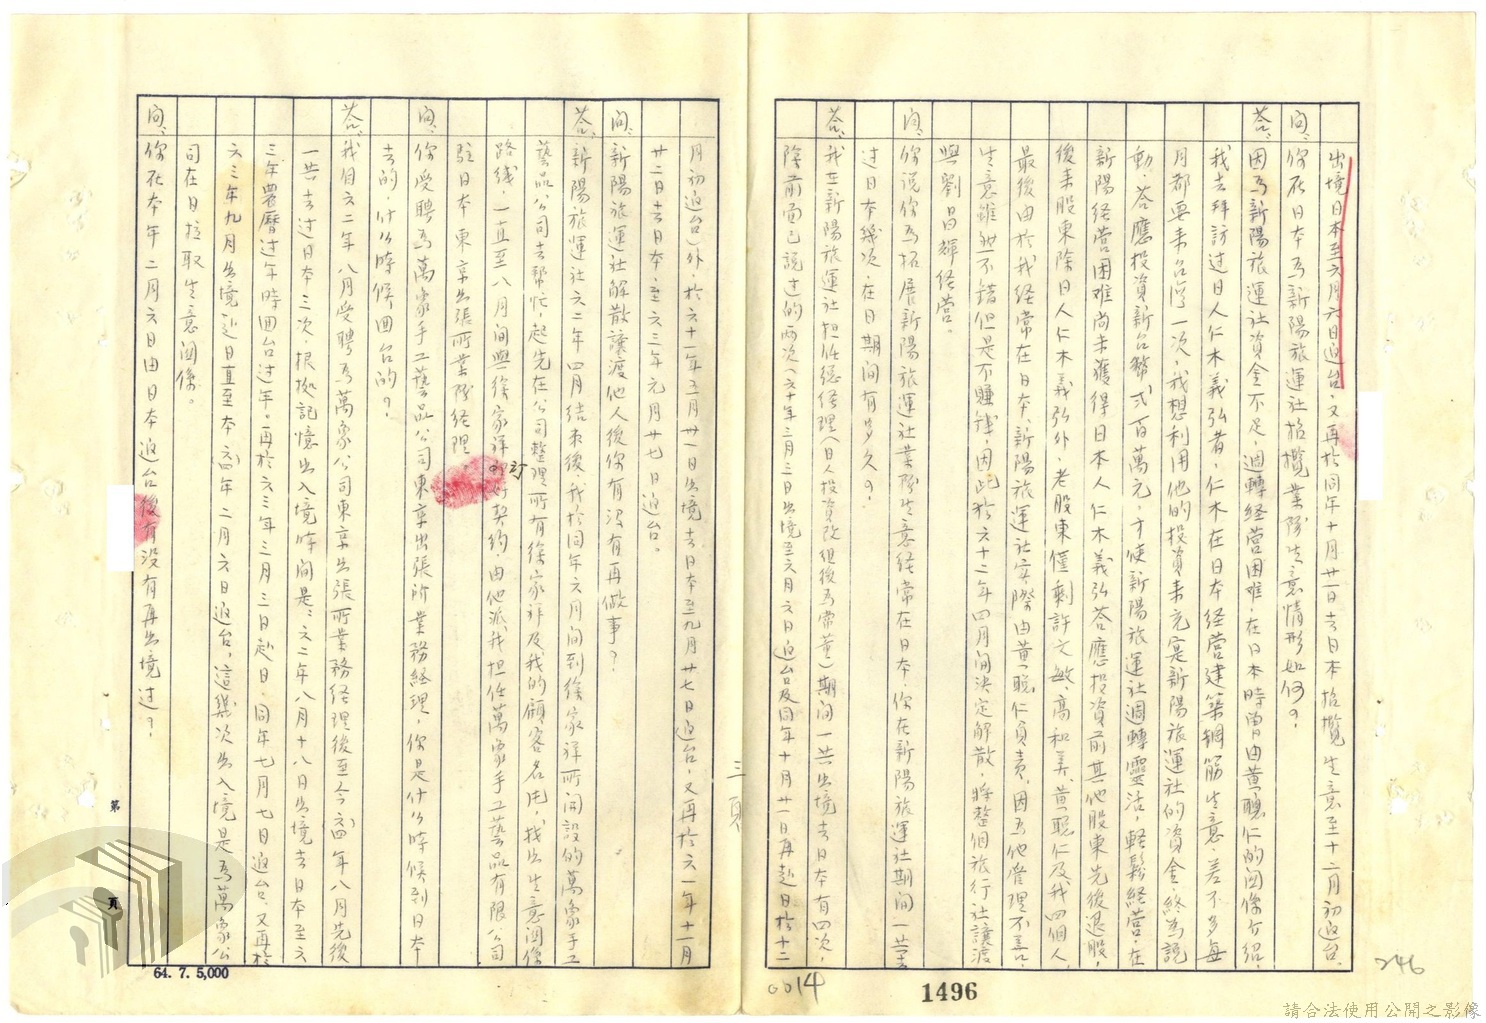 出境日本至六月六日返台，又再於同年十月廿一日去日本招攬生意至十二月初返台。
問、你在日本為新陽旅運社招攬業務生意情形如何？
答、因為新陽旅運社資金不足，週轉經營困难，在日本時曾由黃聰仁的関係介紹，
我去拜訪过日人仁木義弘者，仁木在日本経営建築鋼筋生意，差不多每
月都要来台湾一次，我想利用他的投資来充実新陽旅運社的資金，終為說
動，答應投資新台幣弍百萬元，才使新陽旅運社週轉靈活，輕鬆経営，在
新陽経営困难尚未獲得日本人仁木義弘答應投資前其他股東先後退股，
後来股東除日人仁木義弘外，老股東僅剩許文敏、高和美、黃聰仁及我四個人，
最後由於我経常在日本、新陽旅運社实際由黃聰仁負責，因為他管理不善，
生意雖然不錯但是不賺錢，因此於六十二年四月間決定解散，將整個旅行社讓渡
與劉昌輝経営。
問、你說你為拓展新陽旅運社業務生意経常在日本，你在新陽旅運社期間一共去
过日本幾次，在日期間有多久？
答、我在新陽旅運社担任総経理（日人投資改组後為常董）期間一共出境去日本有四次，
除前面已說过的两次（六十年三月三日出境至六月六日返台及同年十月廿一日再赴日於十二
月初返台）外，於六十一年五月廿一日出境去日本至九月廿七日返台，又再於六一年十一月
廿二日去日本，至六三年元月廿七日返台。
問、新陽旅運社解散讓渡他人後你有没有再做事？
答、新陽旅運社六二年四月结束後，我於同年六月間到徐家祥所開設的萬象手工
藝品公司去帮忙，起先在公司整理所有徐家祥及我的顧客名冊，找出生意関係
路线，一直至八月間與徐家祥訂契約，由他派我担任萬象手工藝品有限公司
駐日本東京出張所業務経理
問、你受聘為萬象手工藝品公司東京出張所業務経理，你是什么時候到日本
去的，什么時候囬台的？
答、我自六二年八月受聘為萬象公司東京出張所業務経理後至今六四年八月先後
一共去过日本三次，根據記憶出入境時間是：六二年八月十八日出境去日本至六
三年農曆过年時囬台过年。再於六三年三月三日赴日，同年七月七日返台，又再於
六三年九月出境赴日直至本六四年二月六日返台，這幾次出入境是為萬象公
司在日拉取生意関係。
問、你在本年二月六日由日本返台後有没有再出境过？
三頁
第 頁
64. 7. 5,000
0014
1496
246
請合法使用公開之影像